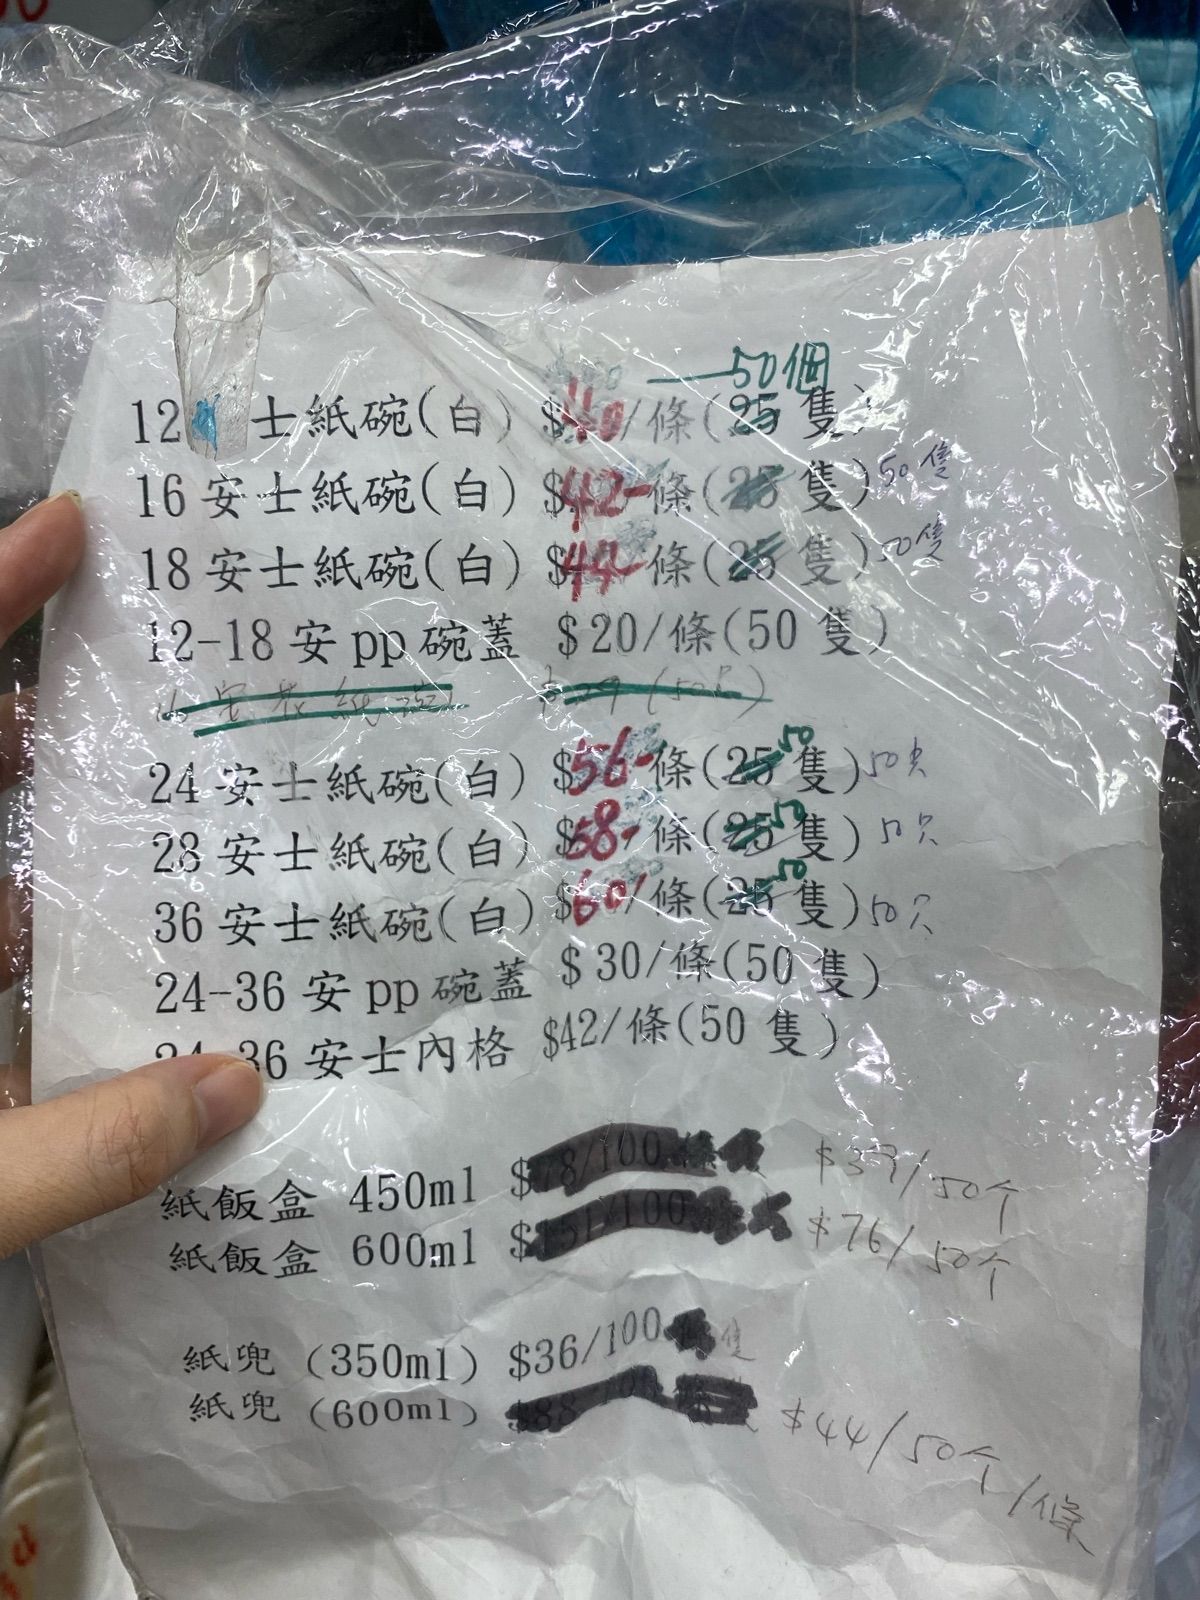 50個
12 士紙碗(白) $40/條(25 隻)
16 安士紙碗(白) $42-條(25 隻) 50隻
18 安士紙碗(白) $44-條(25 隻) 50隻
12-18 安 pp 碗蓋 $20/條(50 隻)
24 安士紙碗(白) $56-條(25 50 隻) 50只
28 安士紙碗(白) $58-條(25 50 隻) 50只
36 安士紙碗(白) $60/條(25 50 隻) 50只
24-36 安 pp 碗蓋 $30/條(50 隻)
24-36 安士內格 $42/條(50 隻)
紙飯盒 450ml $78/100 $39/50个
紙飯盒 600ml $151/100 $76/50个
紙兜 (350ml) $36/100 隻
紙兜 (600ml) $44/50个/條